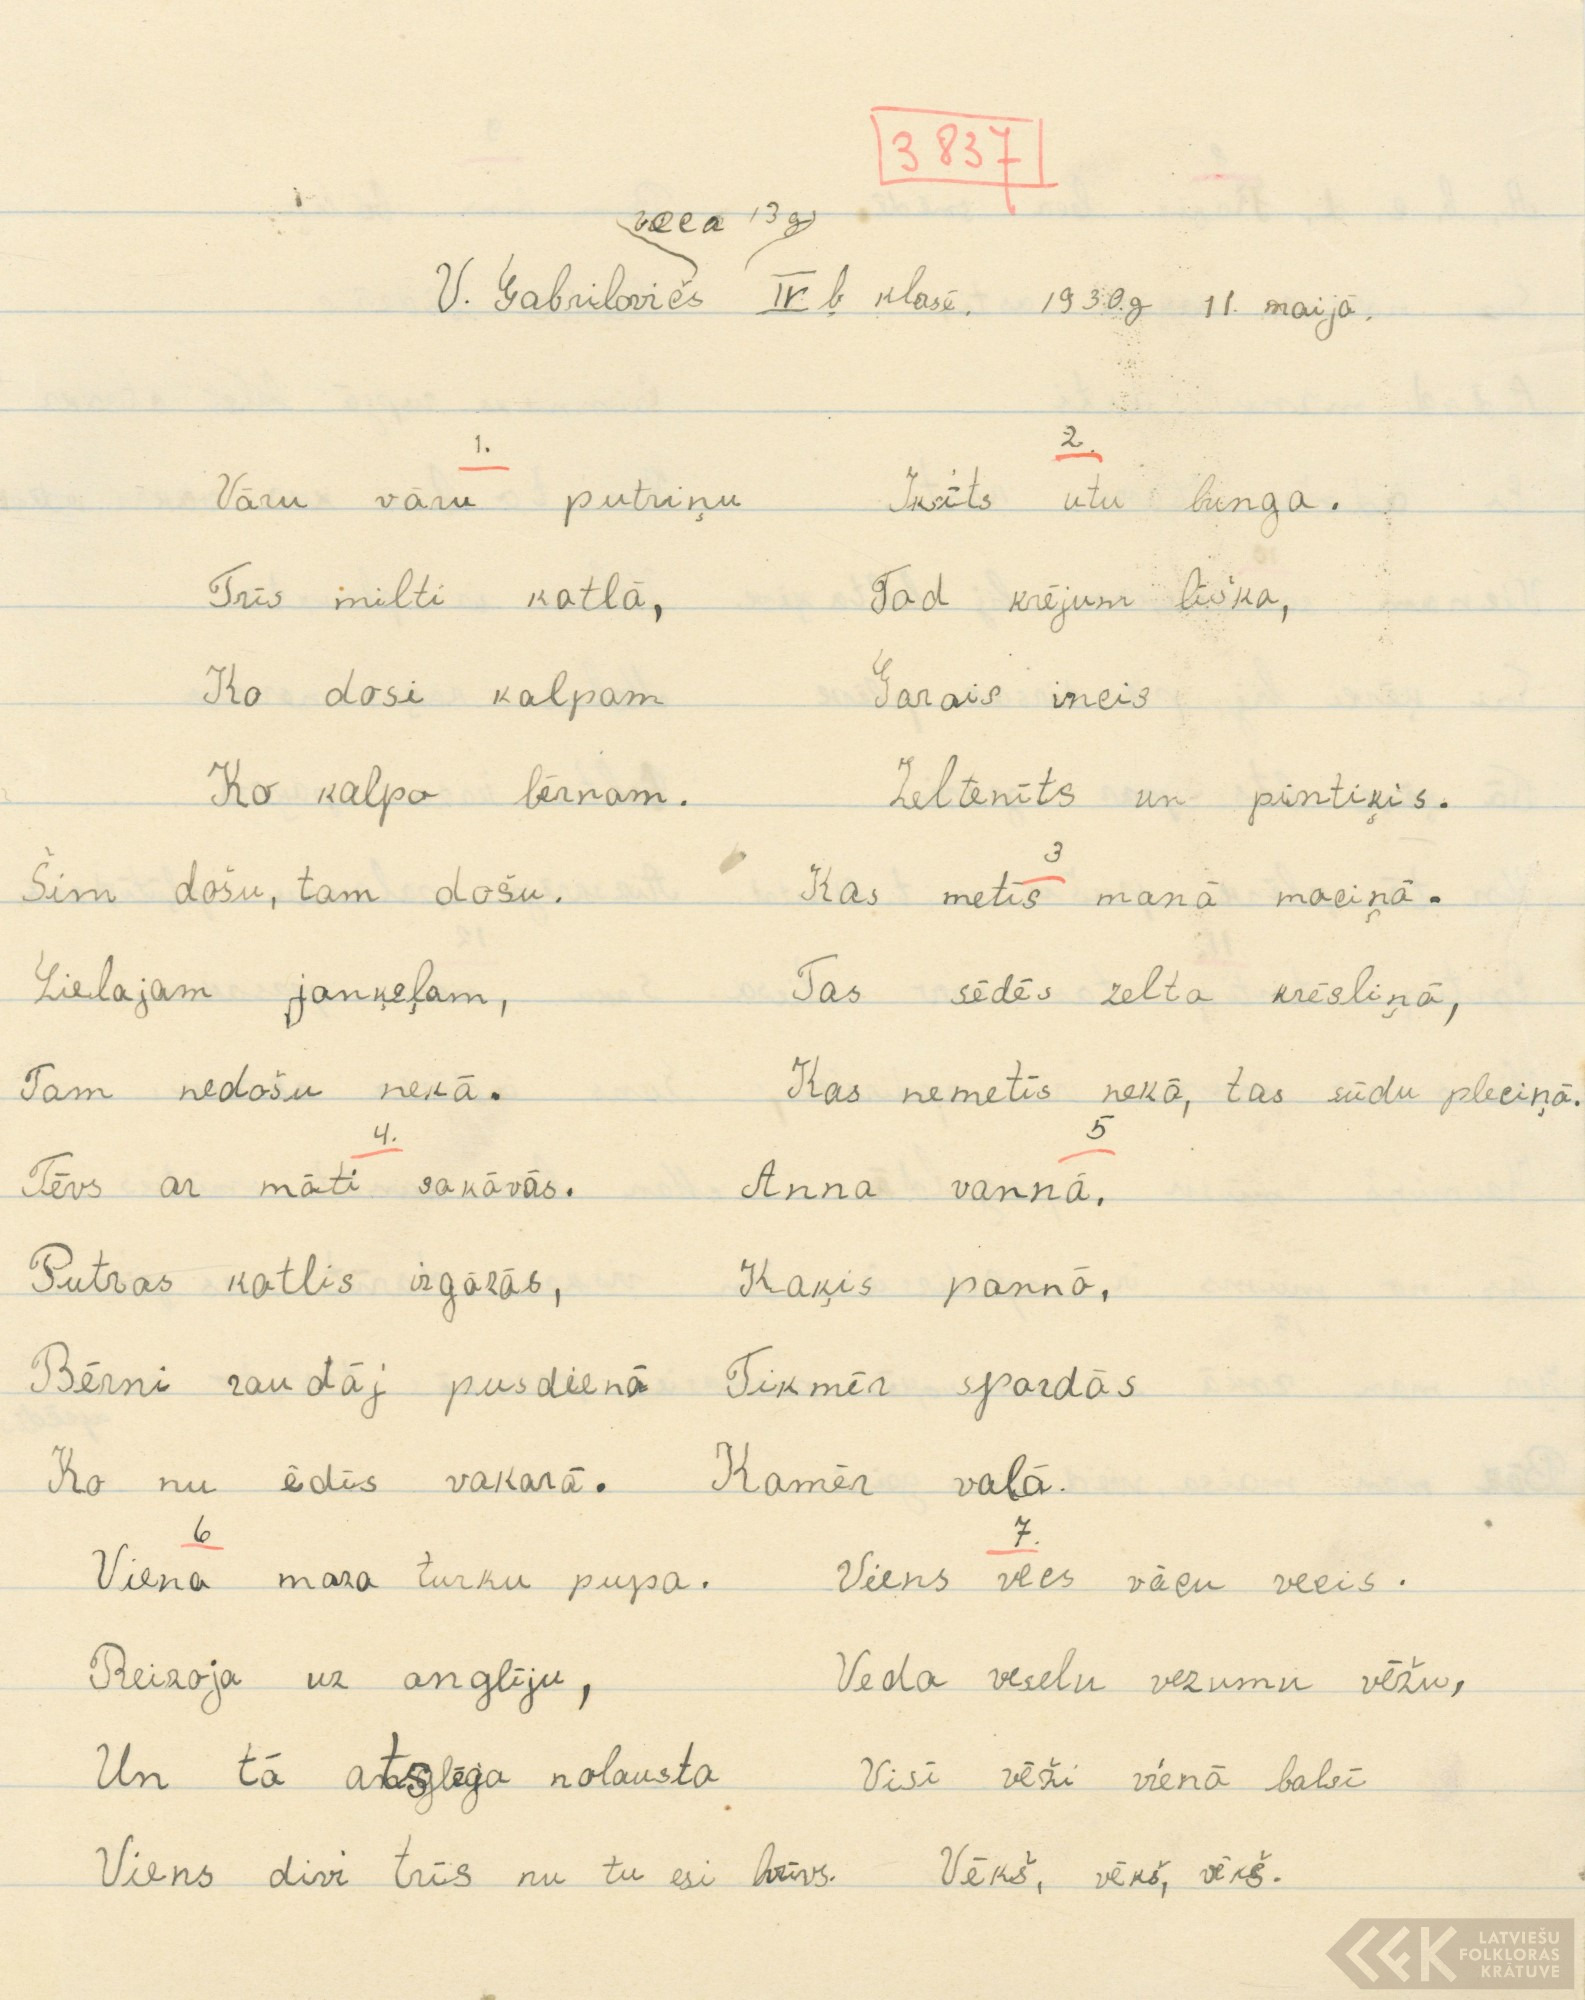 3837
veca 13 g
V. Gabrilovičs IV b klasē. 1930.g 11. maijā.
1.
Vāru vāru putriņu
Trīs milti katlā,
Ko dosi kalpam
Ko kalpa bērnam.
Šim došu, tam došu.
Lielajam janķeļam,
Tam nedošu nekā.
2.
Īkšīts utu bunga.
Tad krējum liška,
Garais incis
Zeltenīts un pintiķis.
3
Kas metīs manā maciņā.
Tas sēdēs zelta krēsliņā,
Kas nemetīs nekā, tas sūdu pleciņā.
4.
Tēvs ar māti sakāvās.
Putras katlis izgāzās,
Bērni raudāj pusdienā
Ko nu ēdīs vakarā.
5
Anna vannā,
Kaķis pannā,
Tikmēr spardās
Kamēr vaļā.
6
Viena maza turku pupa.
Reizoja uz anglīju,
Un tā atslēga nolausta
Viens divi trīs nu tu esi brīvs.
7.
Viens vecs vācu vecis.
Veda veselu vezumu vēžu,
Visi vēži vienā balsī
Vēkš, vēkš, vēkš.
LATVIEŠU
FOLKLORAS
KRĀTUVE